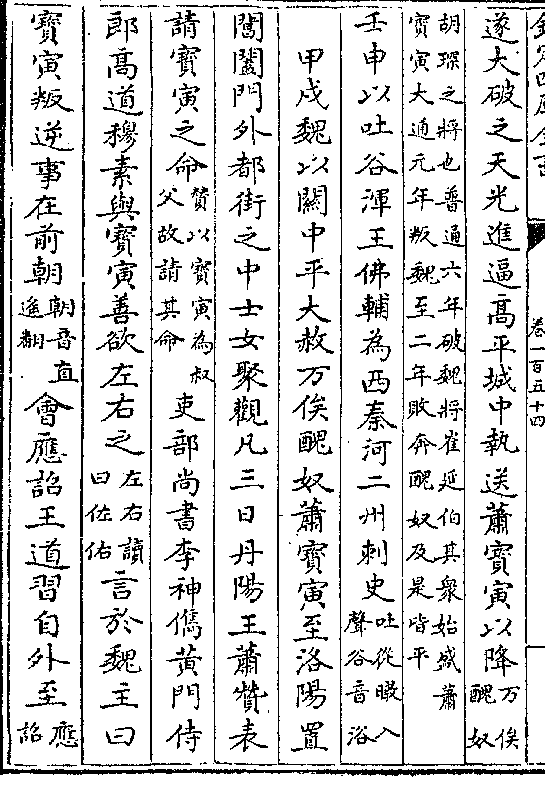 欽定四庫全書
卷一百五十四
遂大破之天光進逼高平城中執送蕭寶寅以降万俟醜奴
胡琛之將也普通六年破魏將崔延伯其衆始盛蕭寶寅大通元年叛魏至二年敗奔醜奴及是皆平
壬申以吐谷渾王佛輔為西秦河二州刺史吐從暾入聲谷音浴
甲戌魏以關中平大赦万俟醜奴蕭寶寅至洛陽置
閶闔門外都街之中士女聚觀凡三日丹陽王蕭贊表
請寶寅之命贊以寶寅為叔父故請其命吏部尚書李神儁黃門侍
郎高道穆素與寶寅善欲左右之左右讀曰佐佑言於魏主曰
寶寅叛逆事在前朝朝音直遙翻會應詔王道習自外至應詔